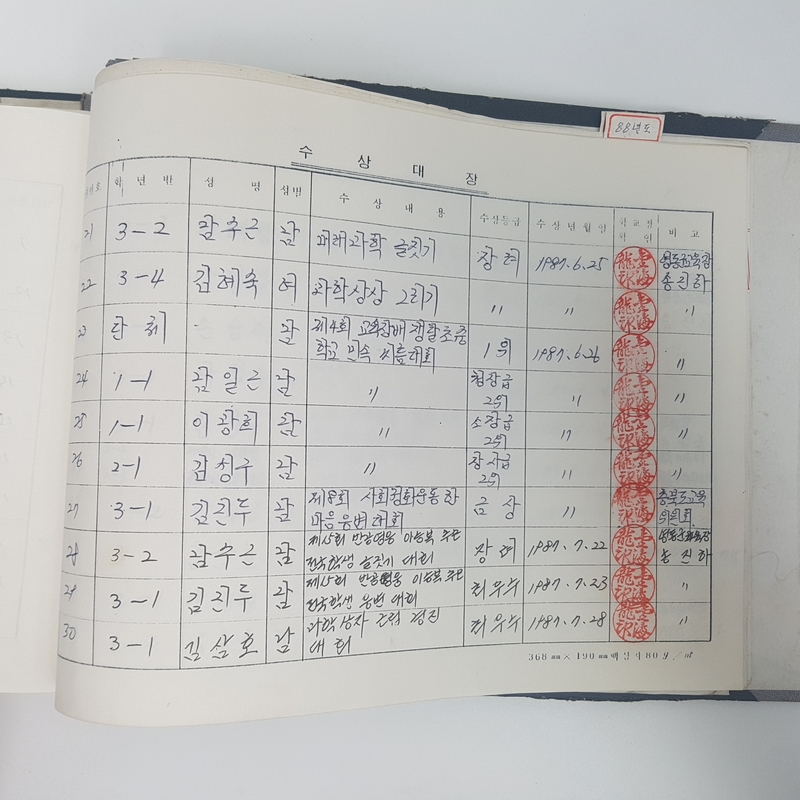 88년도
수 상 대 장
호 학 년 반 성 명 성별 수 상 내 용 수상등급 수 상 년 월 일 학교장 확인 비 고
21 3-2 곽수근 남 미래과학 글짓기 장려 1987.6.25 영동교육장
송진하
22 3-4 김혜숙 여 과학상상 그리기 〃 〃 〃
23 단체 남 제4회 교육장배 쟁탈 초중
학교 민속 씨름대회 1위 1987.6.26 〃
24 1-1 곽일근 남 〃 청장급
2위 〃 〃
25 1-1 이광희 남 〃 소장급
2위 〃 〃
26 2-1 남 〃 장사급
2위 〃 〃
27 3-1 김진두 남 제8회 사회정화운동 한
마음웅변대회 금상 〃 충북도교육
위원회
28 3-2 곽수근 남 제15회 반공영웅 이승복 추모
전국학생 글짓기 대회 장려 1987.7.22 영동교육장
송진하
29 3-1 김진두 남 제15회 반공영웅 이승복 추모
전국학생 웅변 대회 최우수 1987.7.23 〃
30 3-1 김삼호 남 과학상자 조립 경진
대회 최우수 1987.7.28 〃
368㎜×190㎜ 백상지 80g/㎡